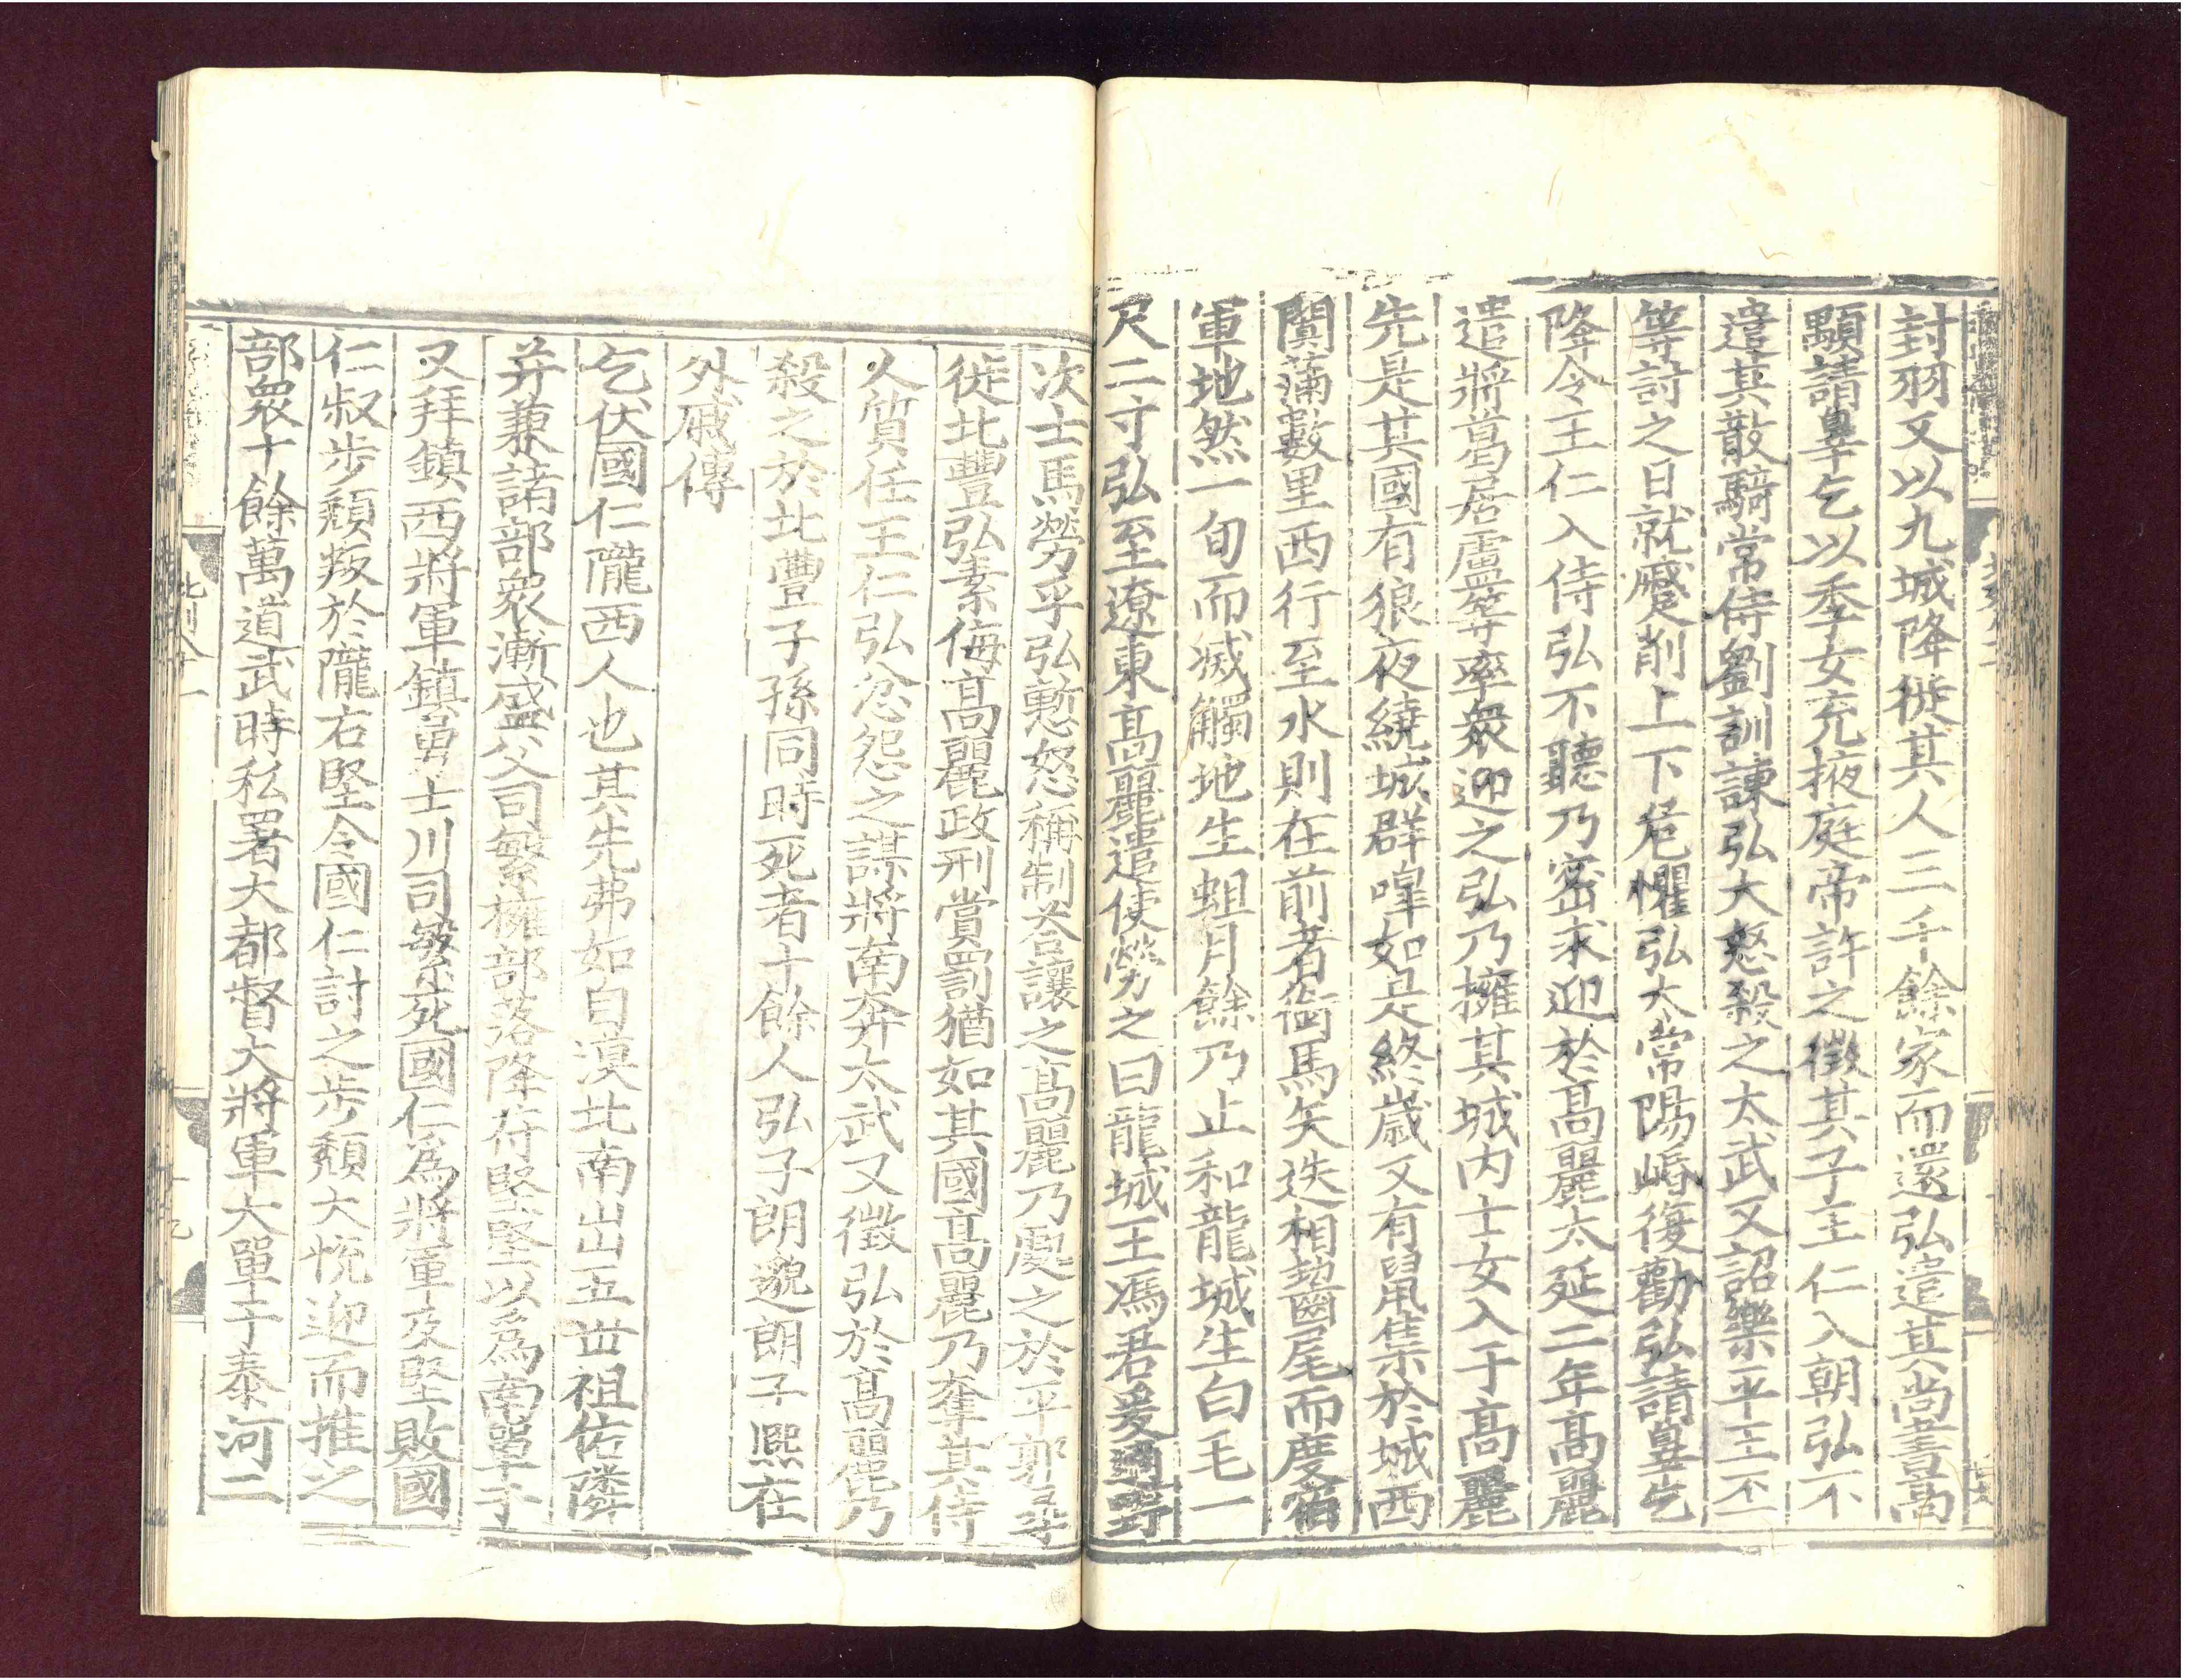 封羽又以九城降徙其人三千餘家而還弘遣其尚書高
顒請辠乞以季女充掖庭帝許之徵其子王仁入朝弘不
遣其散騎常侍劉訓諫弘大怒殺之太武又詔樂平王丕
等討之日就蹙削上下危懼弘太常陽㟭復勸弘請辠乞
降令王仁入侍弘不聽乃密求迎於高麗太延二年高麗
遣將葛居盧等率衆迎之弘乃擁其城内士女入于高麗
先是其國有狼夜繞城群嘷如是終歲又有鼠集於城西
闐蒲數里西行至水則在前者銜馬矢迭相齧尾而度宿
軍地然一旬而滅觸地生蛆月餘乃止和龍城生白毛一
尺二寸弘至遼東高麗遣使勞之曰龍城王馮君爰適野
次士馬勞乎弘慙怒稱制荅讓之高麗乃處之於平郭尋
徙北豐弘素侮高麗政刑賞罰猶如其國高麗乃奪其侍
人質任王仁弘忿怨之謀將南奔太武又徵弘於高麗乃
殺之於北豐子孫同時死者十餘人弘子朗邈朗子熙在
外戚傳
乞伏國仁隴西人也其先弗如自漠北南出五世祖佑隣
并兼諸部衆漸盛父司繁擁部落降苻堅堅以爲南單于
又拜鎮西將軍鎮勇士川司繁死國仁爲將軍及堅敗國
仁叔步頽叛於隴右堅令國仁討之步頽大悅迎而推之
部衆十餘萬道武時私署大都督大將軍大單于秦河二
北列八十一
十九